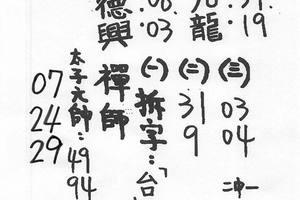 德興:03
龍:19
禪師
太子大師:49
94
07
24
29
(一)
拆字:「台
(二)
31
9
(三)
03
04
二中一